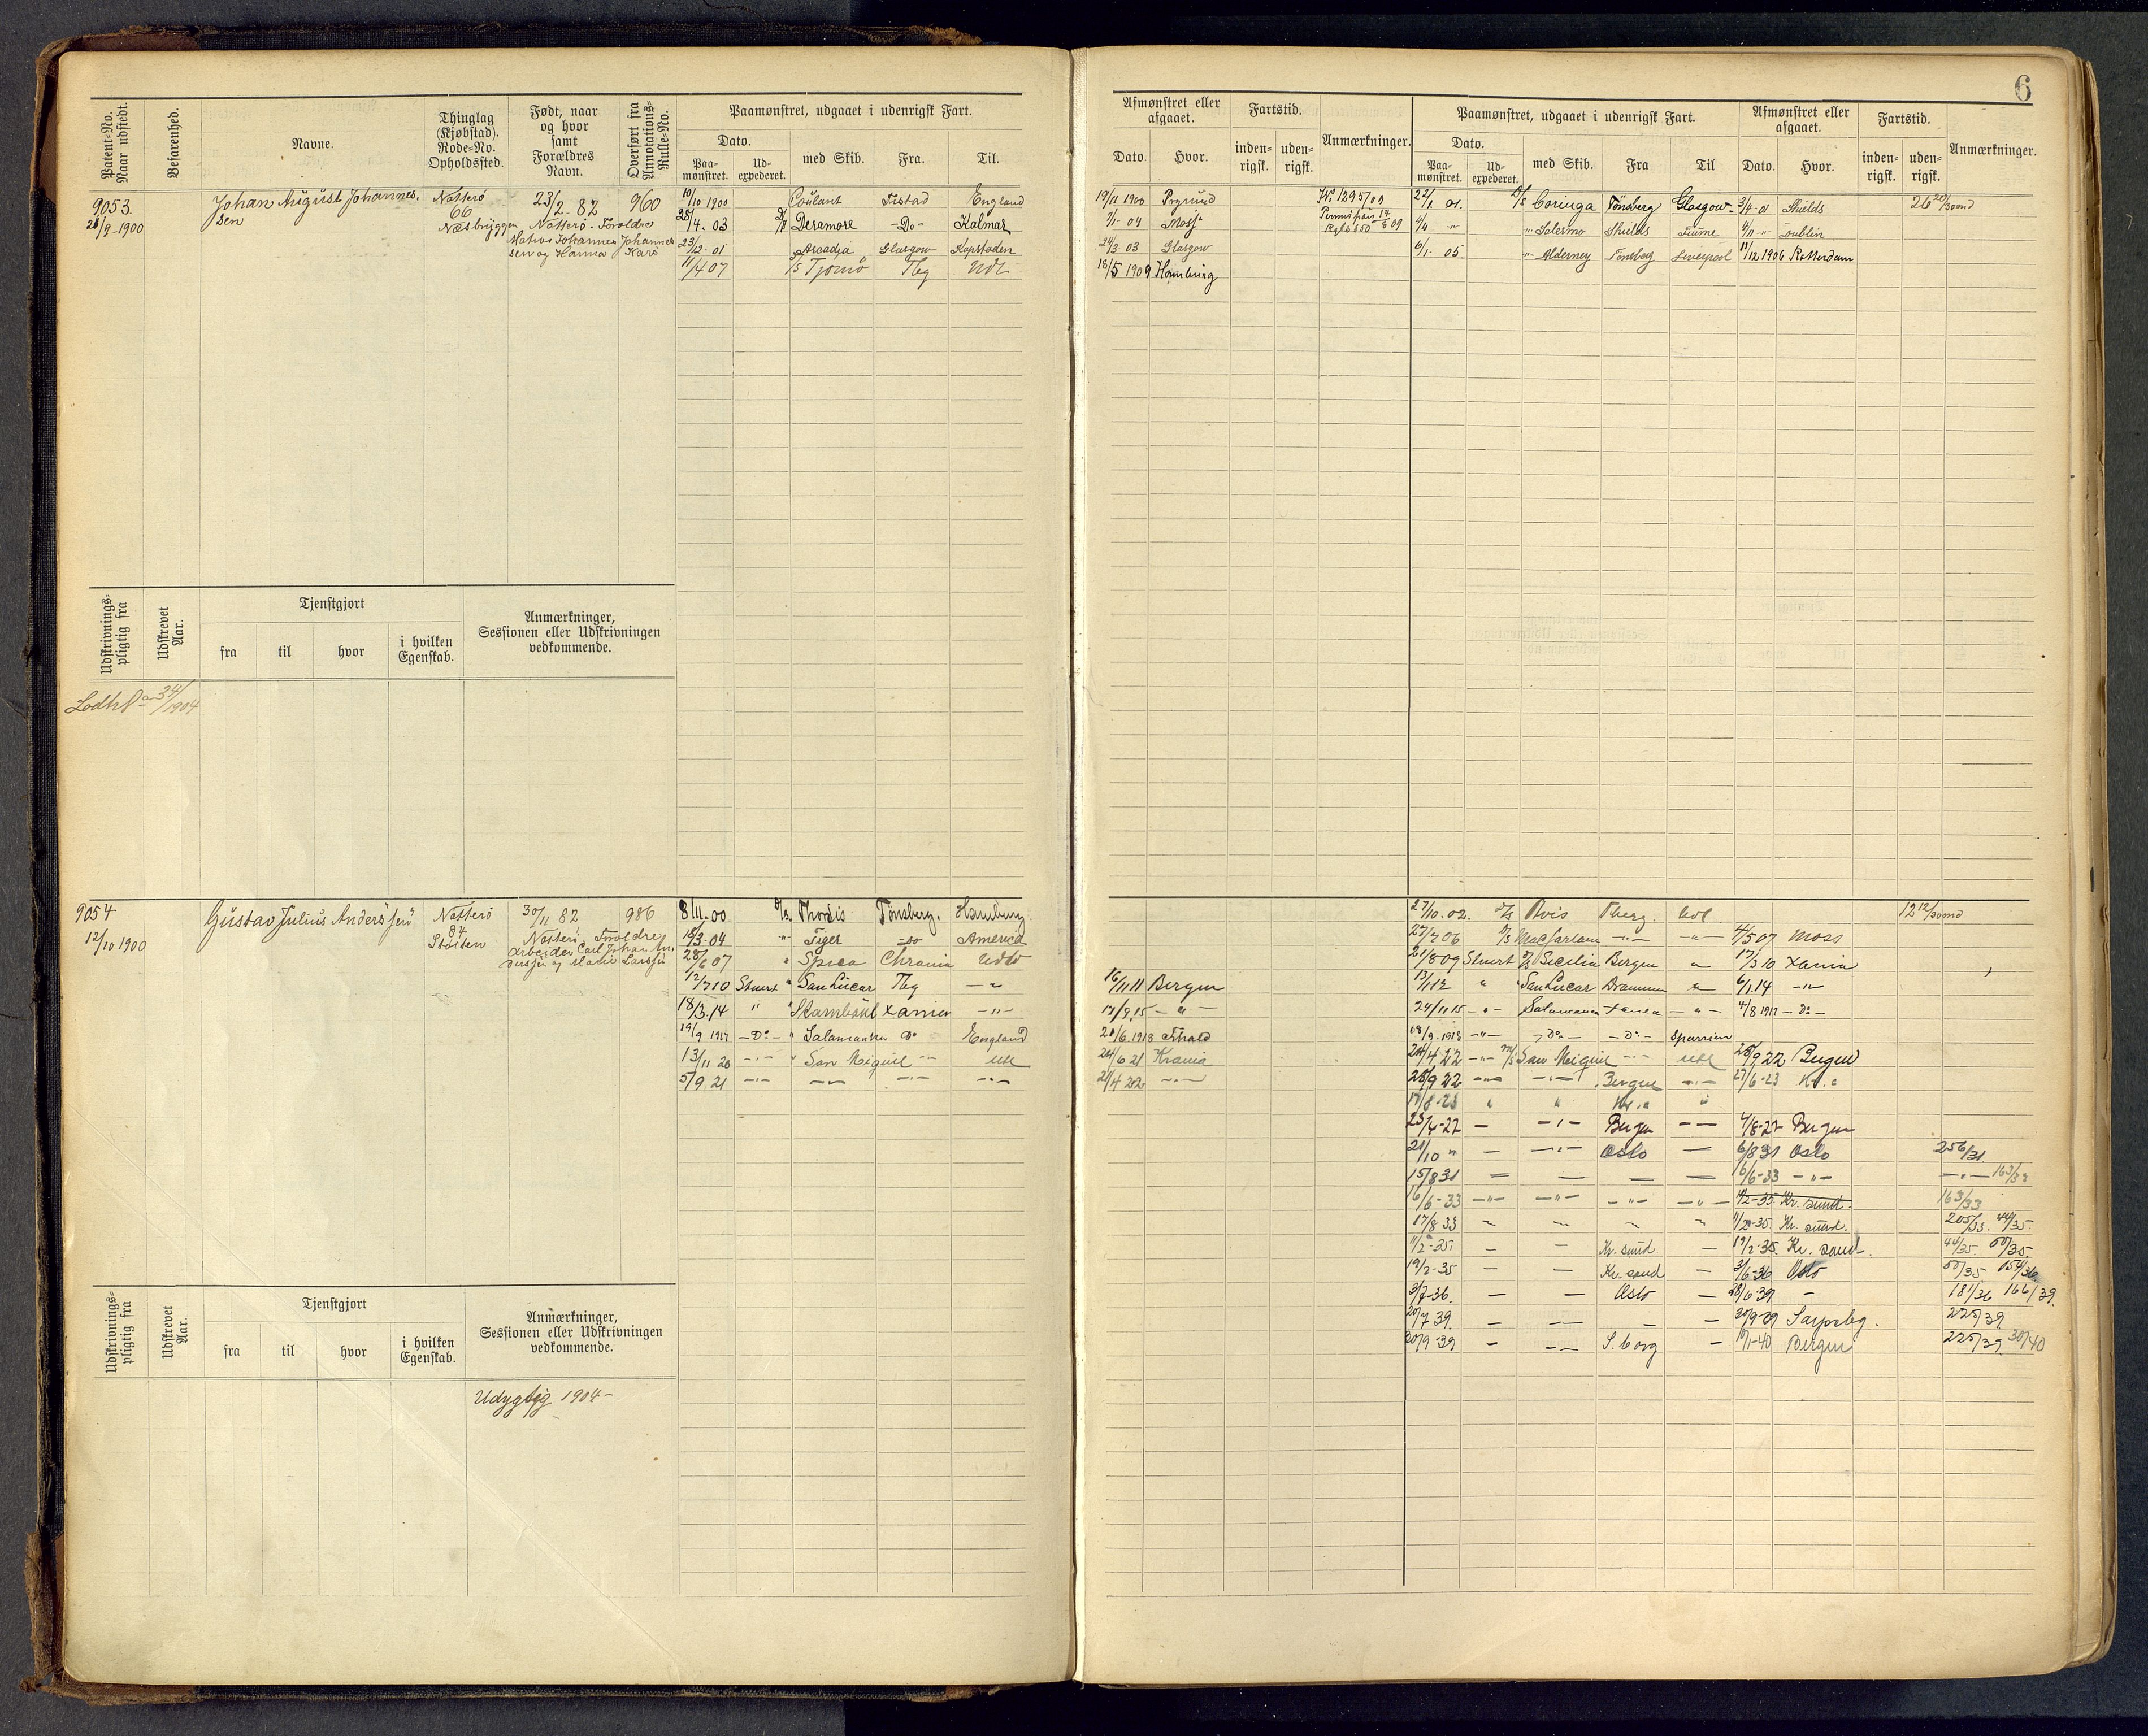 6
Patent-No. Naar udstedt.
Befarenhed.
Navne.
Thinglag (Kjøbstad). Rode-No. Opholdssted.
Født, naar og hvor samt Forældres Navn.
Overført fra Annotations-Rulle-No.
Paamønstret, udgaaet i udenrigsk Fart.
Dato.
Paamønstret.
Udexpederet.
med Skib.
Fra.
Til.
Afmønstret eller afgaaet.
Dato.
Hvor.
Fartstid.
indenrigsk.
udenrigsk.
Anmærkninger.
Paamønstret, udgaaet i udenrigsk Fart.
Dato.
Paamønstret.
Udexpederet.
med Skib.
Fra
Til
Afmønstret eller afgaaet.
Dato.
Hvor.
Fartstid.
indenrigsk.
udenrigsk.
Anmærkninger.
9053.
1900
Johan August Johannes-
sen
Nøtterø
66
Næsbryggen
23/2 82
Nøtterø. Forældre
Johannes
sen og Hanna
960
10/10 1900 Coulant England
28/4 03 Deramore -Do- Kalmar
23/12 01 Arcadia Glasgow Kapstaden
11/4 07 S/S Tjømø Tbg Udl
19/11 1900
04 Moss
03 Glasgow
18/5 1909 Hamburg
22/1 01. Coringa Tønsberg Glasgow 01 Shields
Salermo Shields Fiume Dublin
6/1 05 Alderney Tønsberg Liverpool 11/12 1906 Rotterdam
Udskrivningspligtig fra
Udskrevet Aar.
Tjenstgjort
fra
til
hvor
i hvilken Egenskab.
Anmærkninger, Sessionen eller Udskrivningen vedkommende.
1904
9054
12/10 1900
Gustav Julius Anderssen
Nøtterø
84
30/11 82
Nøtterø, Forældre
Arbeider Carl Johan An-
derssen og Marie Larssen
986
8/11 00 Thordis Tønsberg. Hamburg.
18/3 04 " Tiger do America
28/6 07 " Spica Chrania Udl
12/7 10 Stuert " San Lucar Tbg
18/3 14 " " Stamboul Xania -"-
19/9 1917 -Do- " Salamanka Do England
13/11 20 -"- " San Miguel -"- Udl
5/9 21 -"- -"- -"- -"-
16/11 11 Bergen
17/9 15 - " -
20/6 1918 Frhald
24/6 21 Krania
27/10 02. Avis Tberg. Udl
27/7 06 D/S Macfarlane -"- -"- 4/5 07 Moss
21/8 09 Stuert D/S Sicilia Bergen " 17/3 10 Xania
13/1 12 " " San Lucar Drammen " 6/1 14 -"-
24/11 15 -"- Salamanca Xania -"- 4/8 1917 -Do-
18/9 1918 -"- -Do- -Do- Spanien
24/4 22 -"- San Miguel -"- Udl 28/9 22 Bergen
28/9 22 -"- -"- Bergen -"- 27/6 23 Kr.a
17/8 23 " " Kr.a "
23/4-27 - -"- Bergen - 4/8-27 Bergen
21/10 " - -"- Oslo - 6/8 31 Oslo 256/31
15/8 31 - - - - 16/6-33 -"- 163/33
16/6-33 -"- -"- -"- -"- Kr. sund. 163/33
17/8 33 " - " " Kr. sund. 205/33. 44/35.
11/2-35. - - Kr. sund - 19/2-35. Kr. sand. 44/35. 50/35.
19/2-35 - - Kr. sand - 3/6-36 Oslo 50/35 154/36
3/7-36. - - Oslo - 28/6 39. - 181/36 166/39.
20/7 39. - - - - 20/9-39 Sarpsbg. 225/39
20/9-39 - - S.borg - Bergen 225/39. 30/40
Udskrivningspligtig fra
Udskrevet Aar.
Tjenstgjort
fra
til
hvor
i hvilken Egenskab.
Anmærkninger, Sessionen eller Udskrivningen vedkommende.
Udygtig 1904-